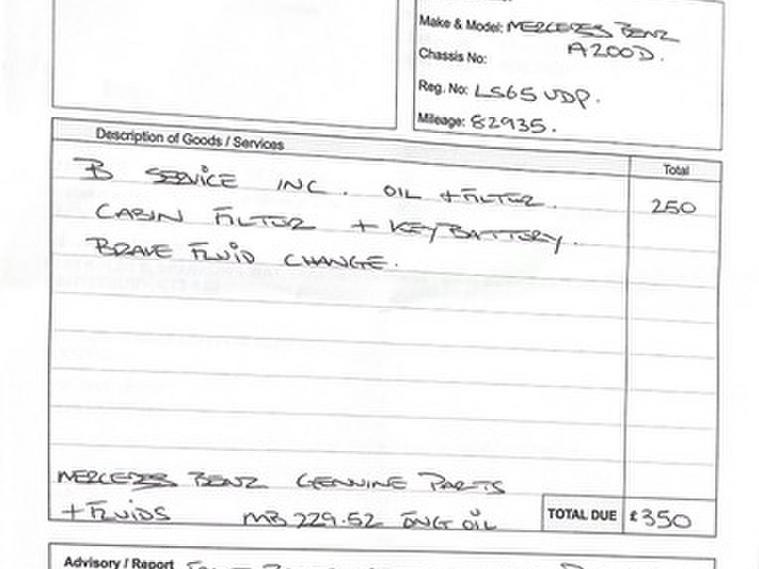 Make & Model: MERCEDES BENZ
A200D.
Chassis No:
Reg. No: LS65 UDP.
Mileage: 82935.
Description of Goods / Services
Total
B SERVICE INC. OIL + FILTER. 250
CABIN FILTER + KEY BATTERY.
BRAKE FLUID CHANGE.
MERCEDES BENZ GENUINE PARTS
+ FLUIDS MB 229.52 ENG OIL
TOTAL DUE £350
Advisory / Report